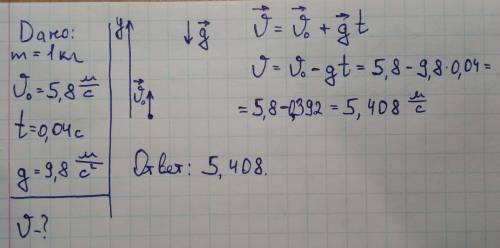 Дано:
m = 1 кг
𝜗₀ = 5,8 м/с
t = 0,04 с
g = 9,8 м/с²
𝜗 - ?
y
𝜗⃗₀
g⃗
𝜗⃗ = 𝜗⃗₀ + g⃗ t
𝜗 = 𝜗₀ - gt = 5,8 - 9,8·0,04 =
= 5,8 - 0,392 = 5,408 м/с
Ответ: 5,408.